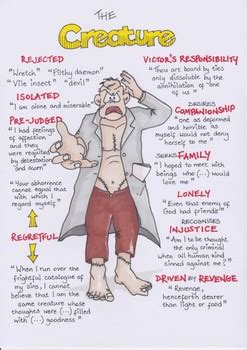 THE
Creature
REJECTED
"Wretch" "Filthy daemon"
"Vile insect" "devil"
ISOLATED
"I am alone and miserable"
PRE-JUDGED
"I had feelings
of affection
and they
were requited
by detestation
and scorn"
"Your abhorrence
cannot equal that
with which I
regard myself"
REGRETFUL
"When I run over the
frightful catalogue of
my sins, I cannot
believe that I am the
same creature whose
thoughts were (...) filled
with (...) goodness"
VICTOR'S RESPONSIBILITY
"Thou art bound by ties
only dissoluble by the
annihilation of one
of us"
DESIRES
COMPANIONSHIP
"One as deformed
and horrible as
myself would not
deny herself to
me"
SEEKS FAMILY
"I hoped to meet with
beings who (...) would
love me"
LONELY
"Even that enemy of
God had friends"
RECOGNISES
INJUSTICE
"Am I to be thought
the only criminal,
when all human kind
sinned against me?"
DRIVEN BY REVENGE
"Revenge,
henceforth dearer
than light or food"